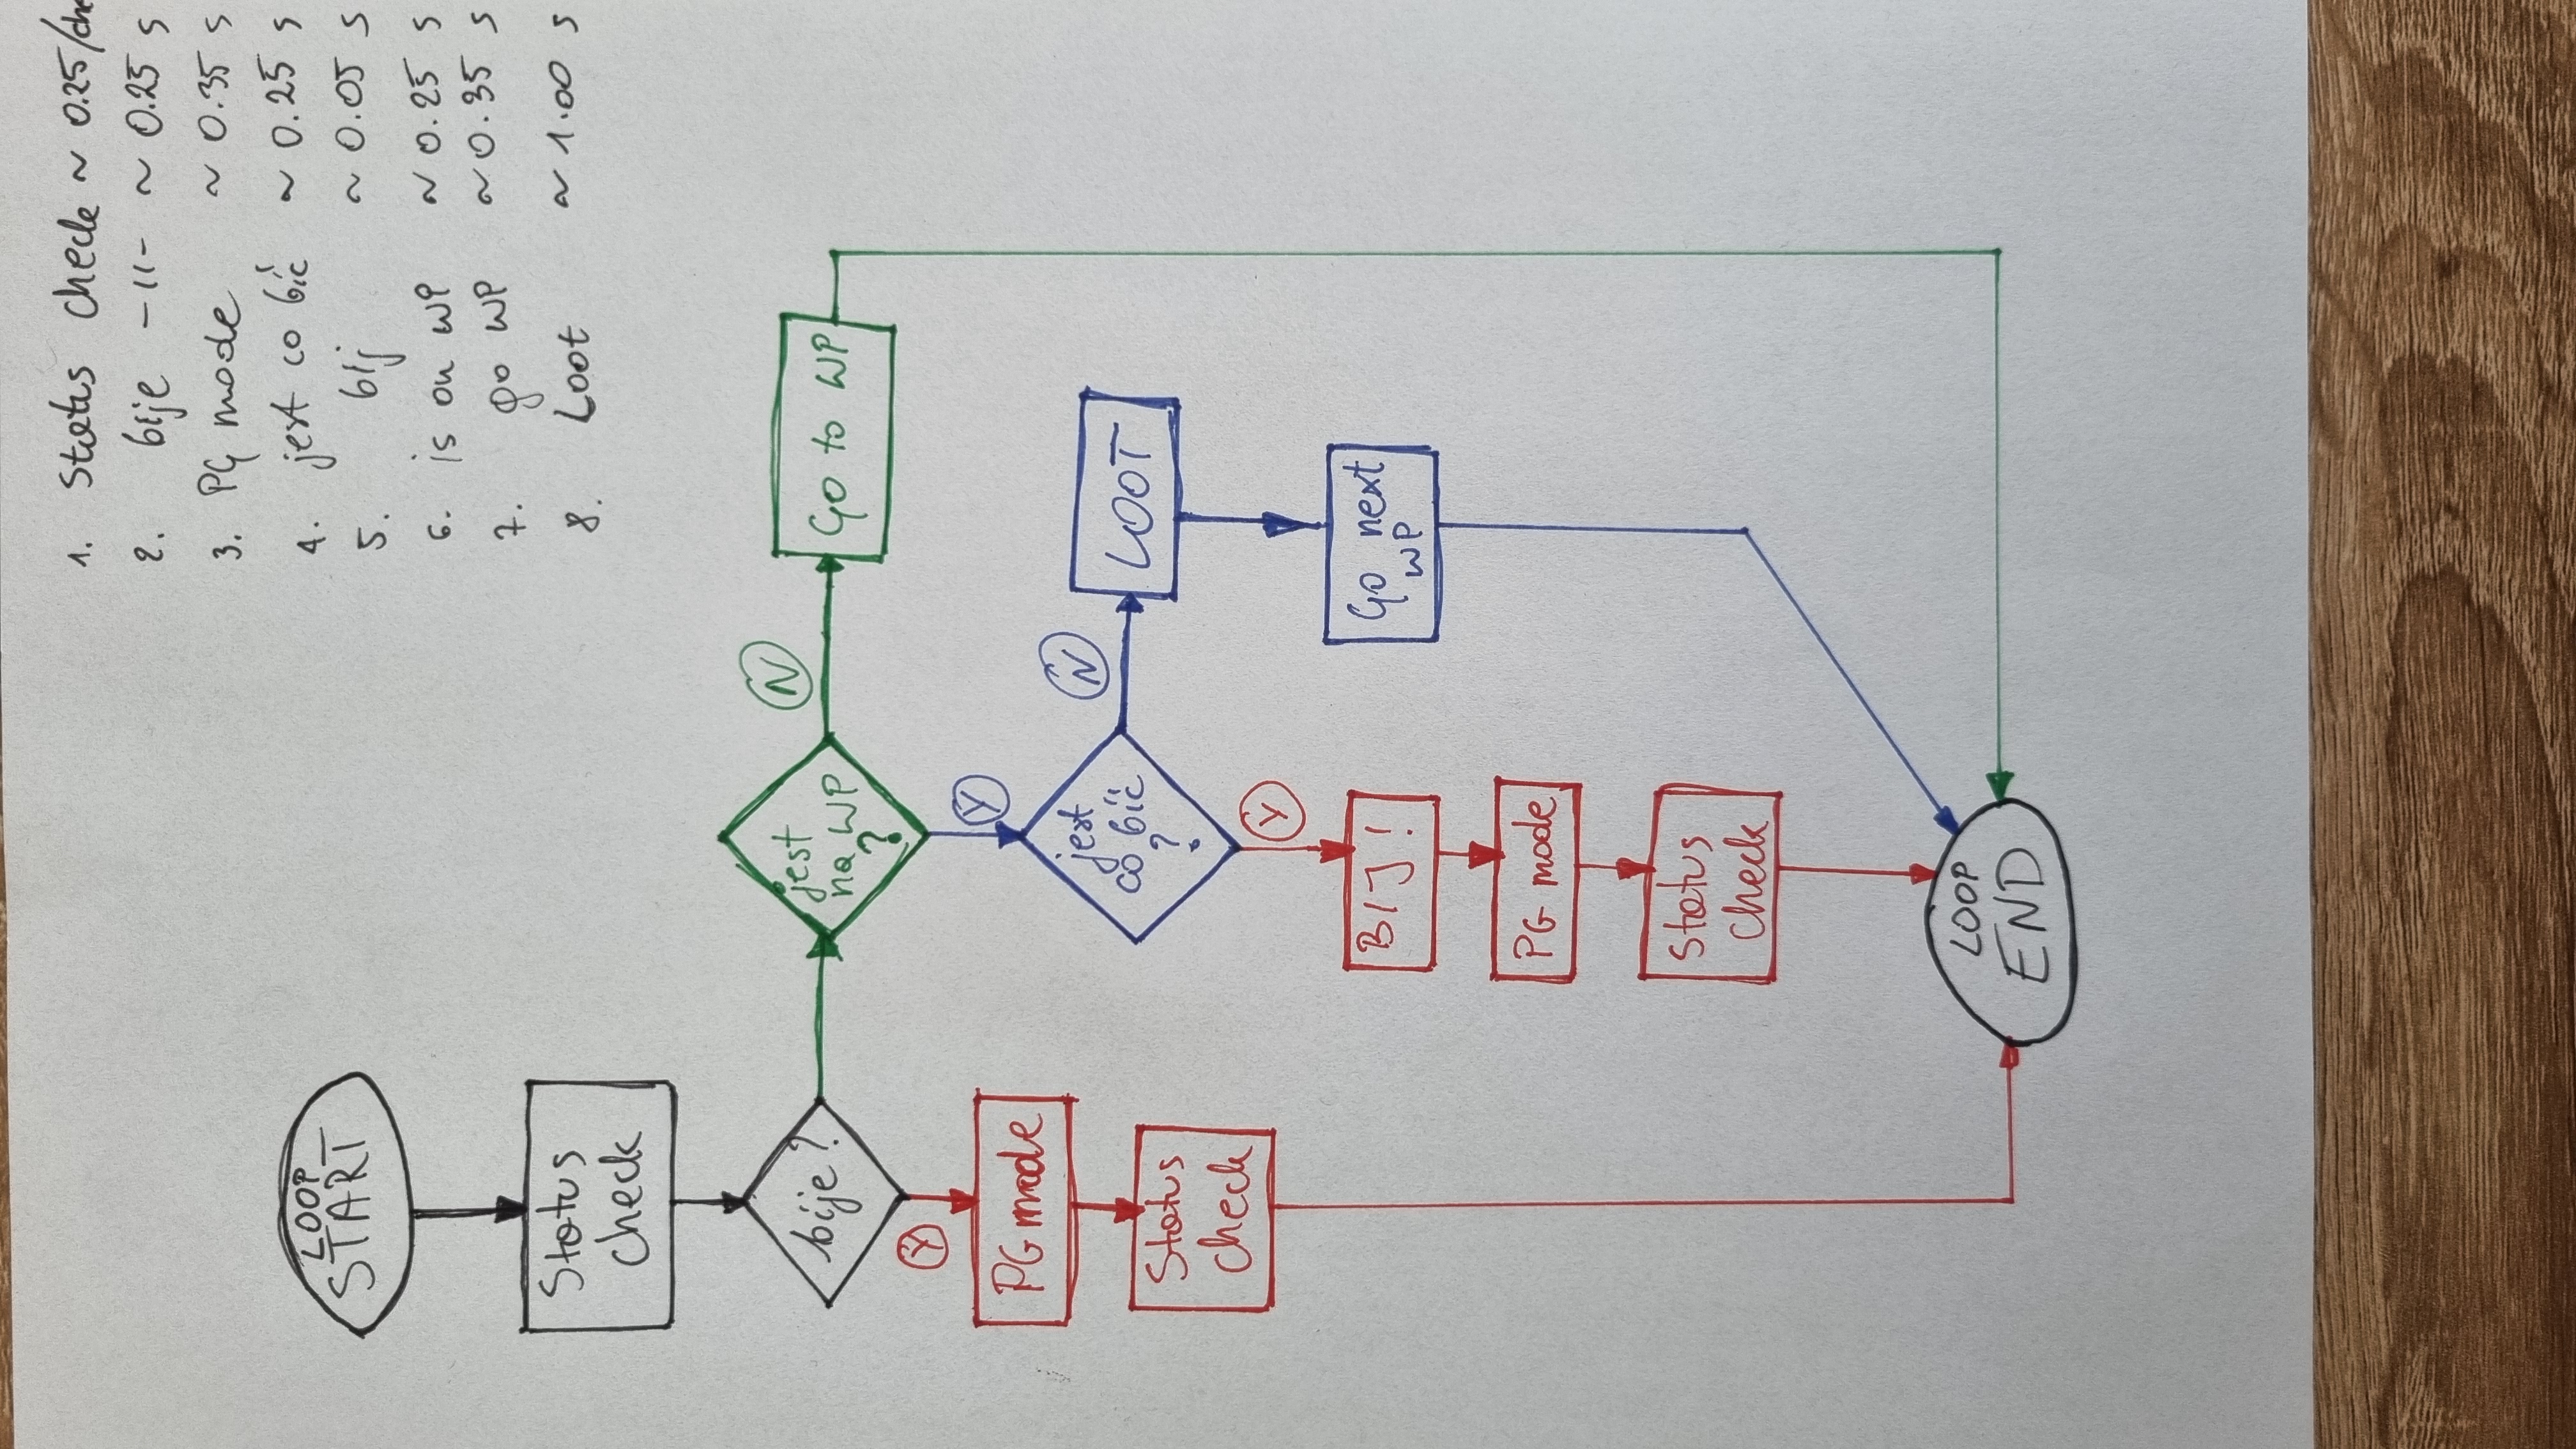 1. Status check ~ 0.25/che
2. bije -11- ~ 0.25 s
3. PG mode ~ 0.35 s
4. jest co bić ~ 0.25 s
5. bij ~ 0.05 s
6. is on WP ~ 0.25 s
7. go WP ~ 0.35 s
8. Loot ~ 1.00 s
LOOP
START
Status
check
bije?
Y
PG mode
Status
check
jest
na WP
?
N
Go to WP
Y
jest
co bić
?
N
LOOT
Go next
WP
Y
BIJ!
PG mode
Status
check
LOOP
END